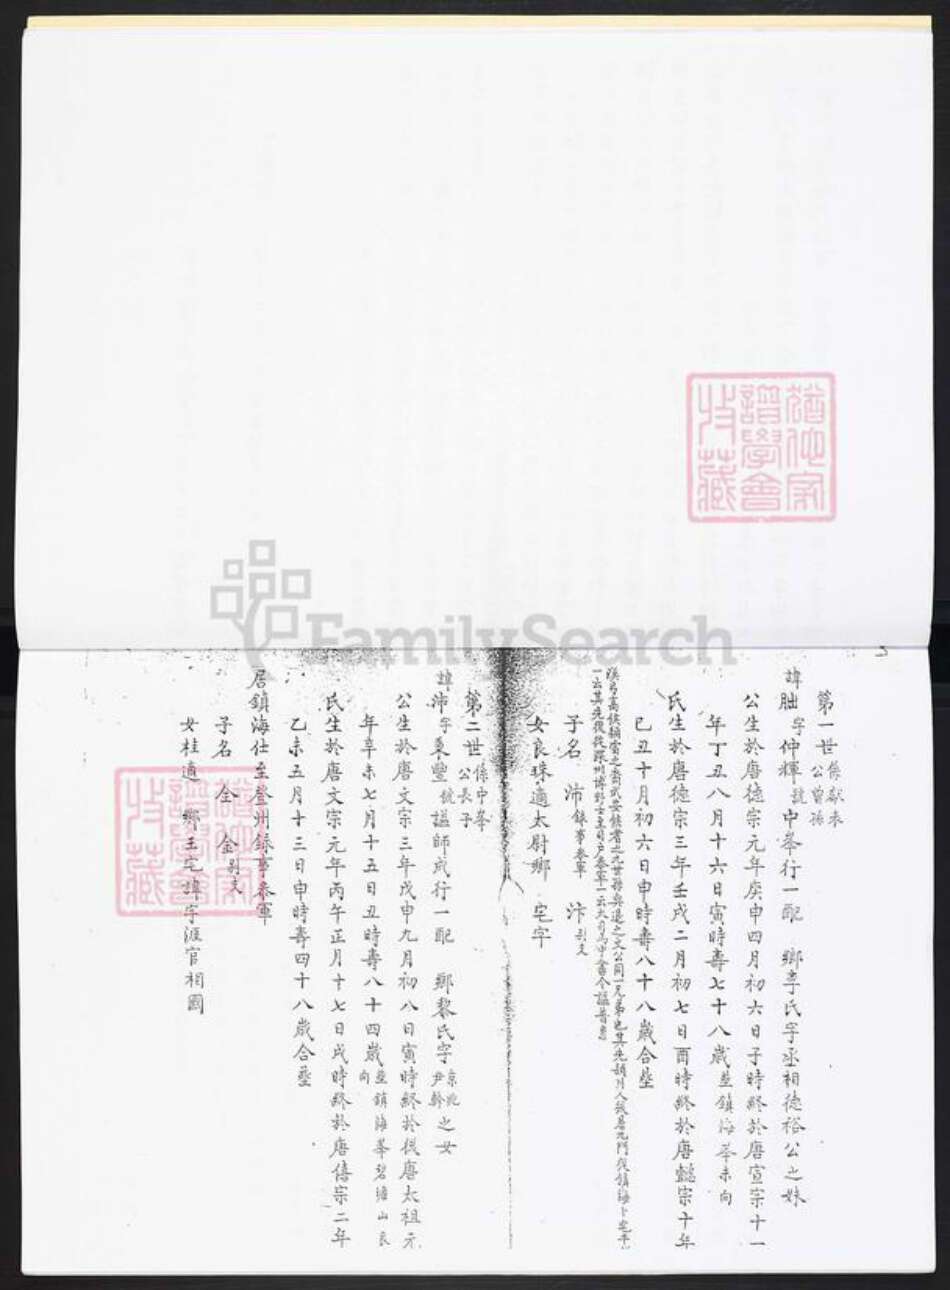 猶他家
譜學會
收藏
FamilySearch
第一世 係獻来公曾孫
諱朏字仲輝號中峯行一配 鄉李氏字丞相德裕公之妹
公生於唐德宗元年庚申四月初六日子時終於唐宣宗十一
年丁丑八月十六日寅時壽七十八歲塟鎮海峯未向
氏生於唐德宗三年壬戌二月初七日酉時終於唐懿宗十年
己丑十月初六日申時壽八十八歲合塟
子名 沛錄事參軍 汴別支
女良珠適太尉鄉 宅字
第二世 係中峯公長子
諱沛字秉豐號謚師成行一配 鄉黎氏字京兆尹幹之女
公生於唐文宗三年戊申九月初八日寅時終於後唐太祖元
年辛未七月十五日丑時壽八十四歲塟鎮海峯碧塘山艮向
氏生於唐文宗元年丙午正月十七日戌時終於唐僖宗二年
乙未五月十三日申時壽四十八歲合塟
居鎮海仕至登州錄事參軍
子名 全 金別支
女桂適 鄉王宅諱字涯官相國
猶他家
譜學會
收藏